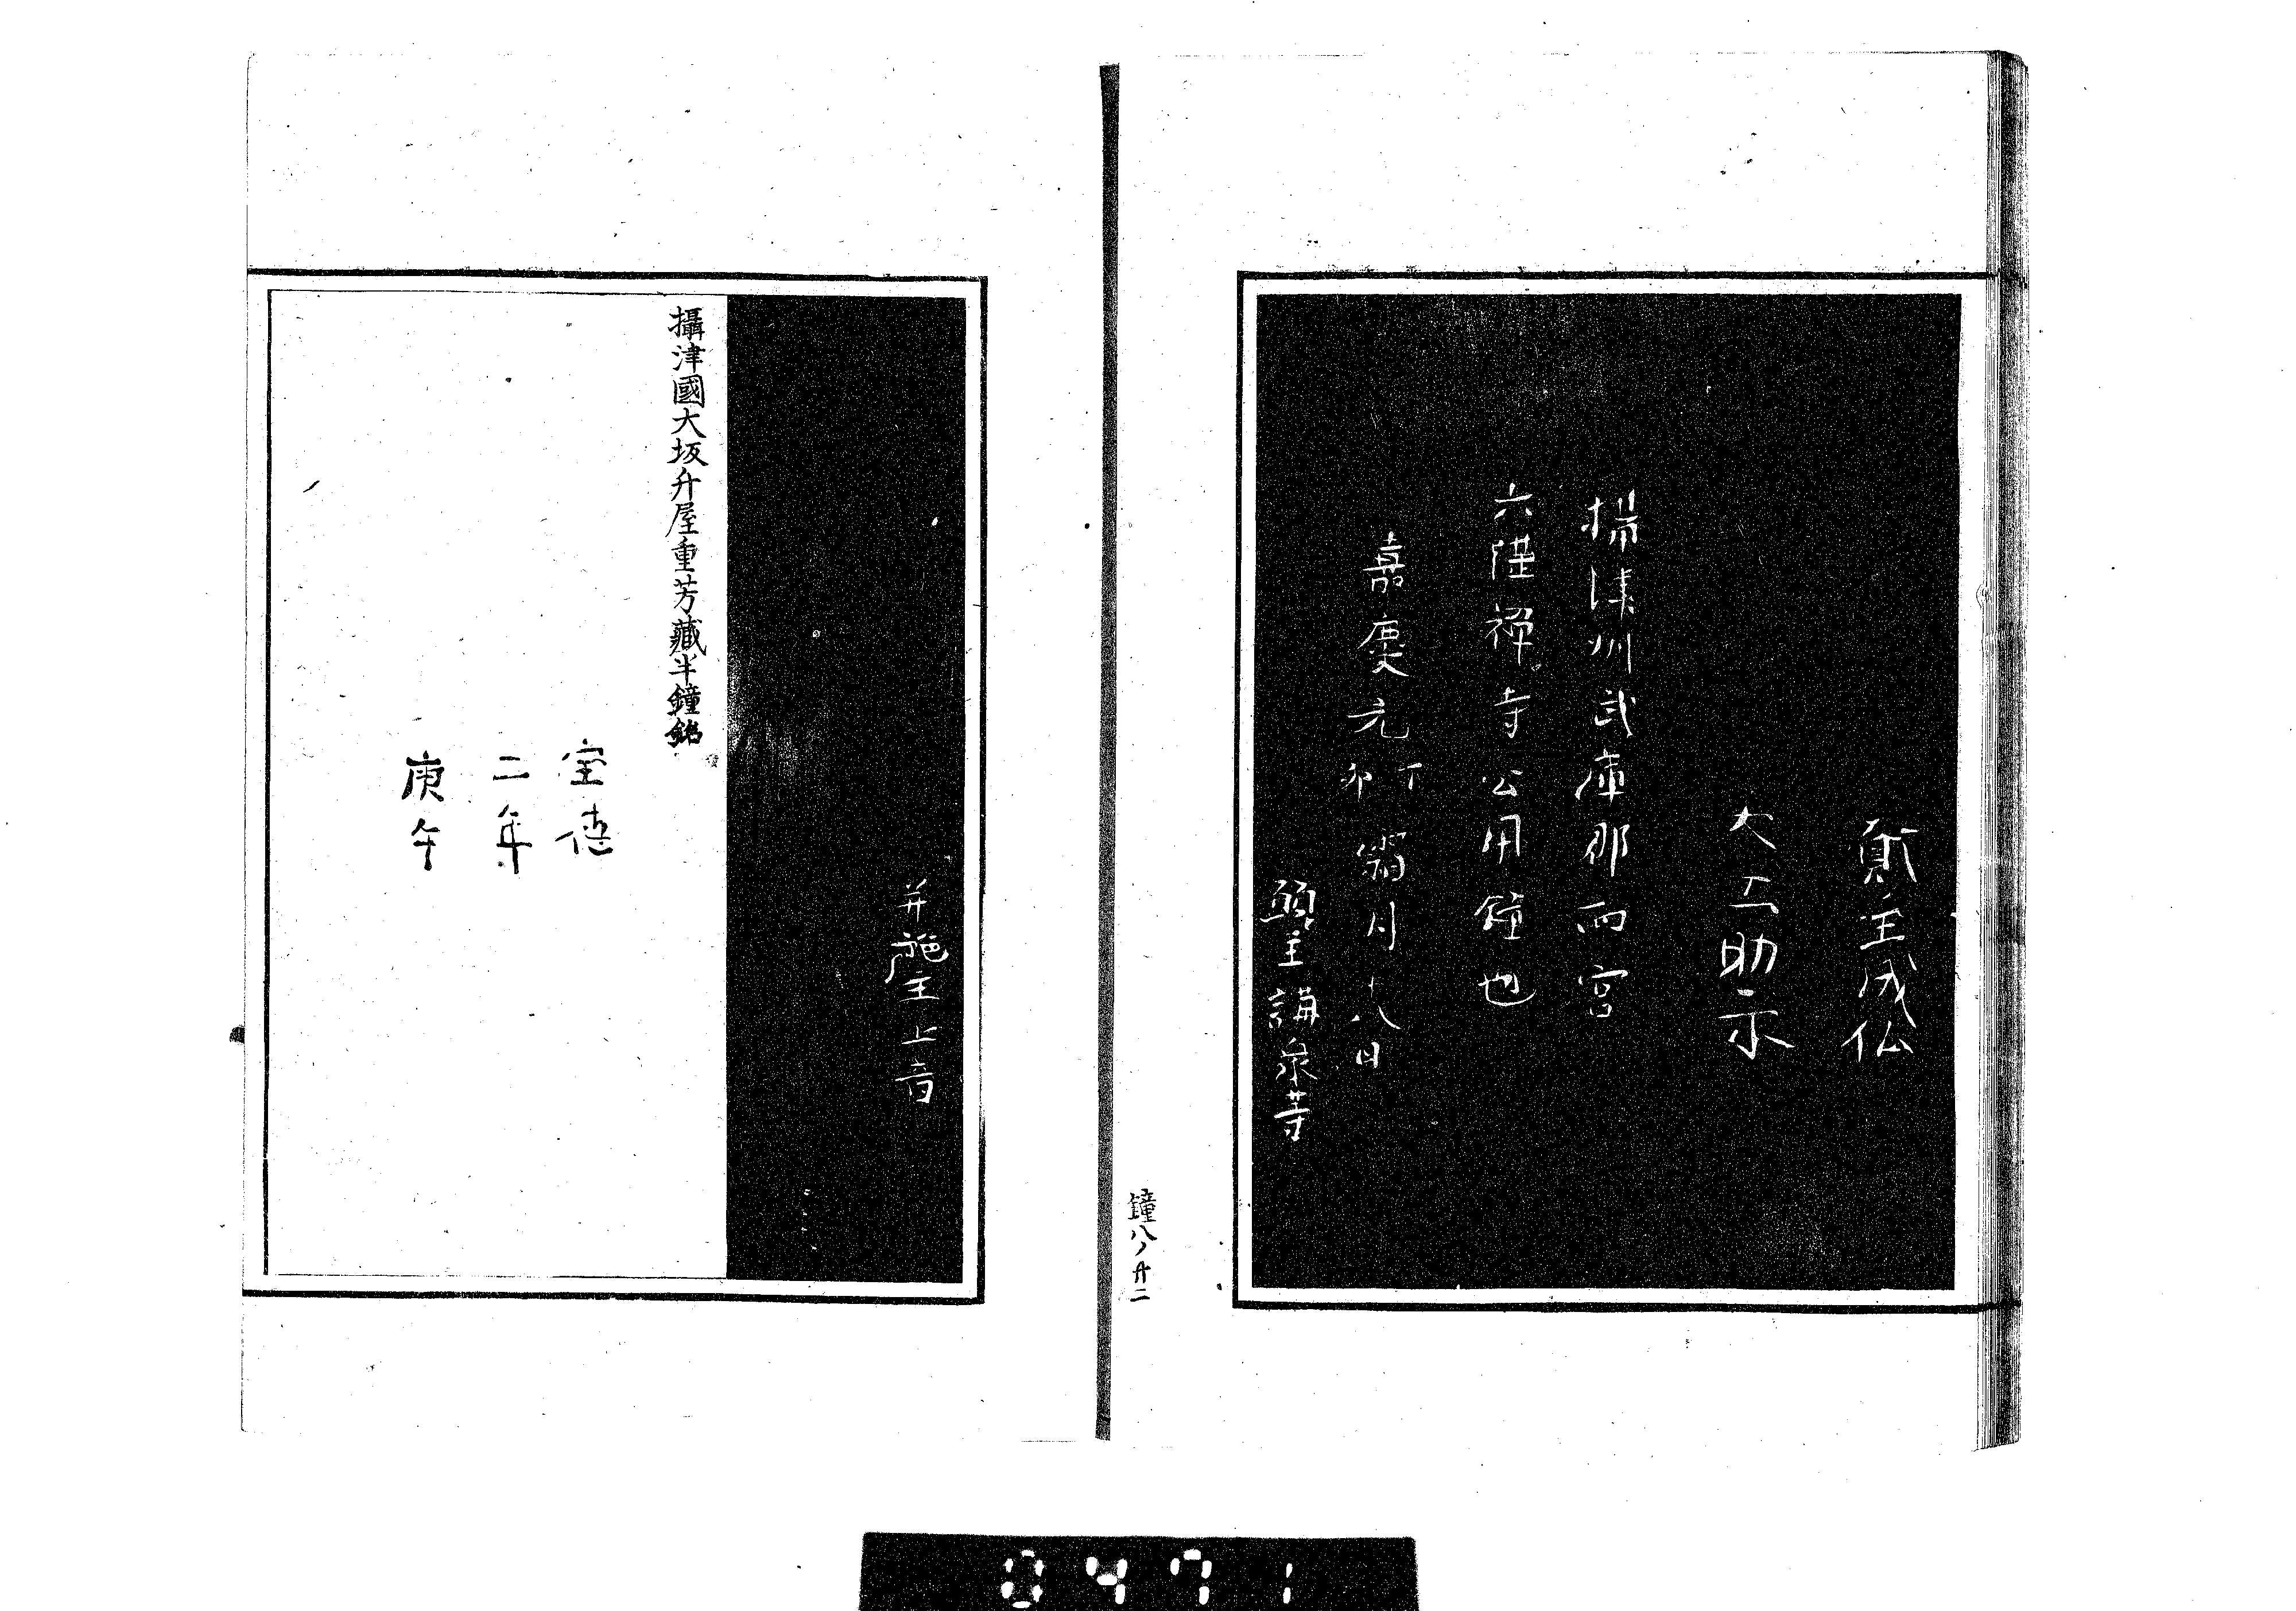 貟主成仏
大工助永
攝津州武庫郡西宮
六湛禅寺公用鐘也
嘉慶元丁卯霜月十八日
願主講衆等
鐘八ノ廿二
并施主上音
攝津國大坂升屋重芳藏半鐘銘
宝徳
二年
庚午
0471